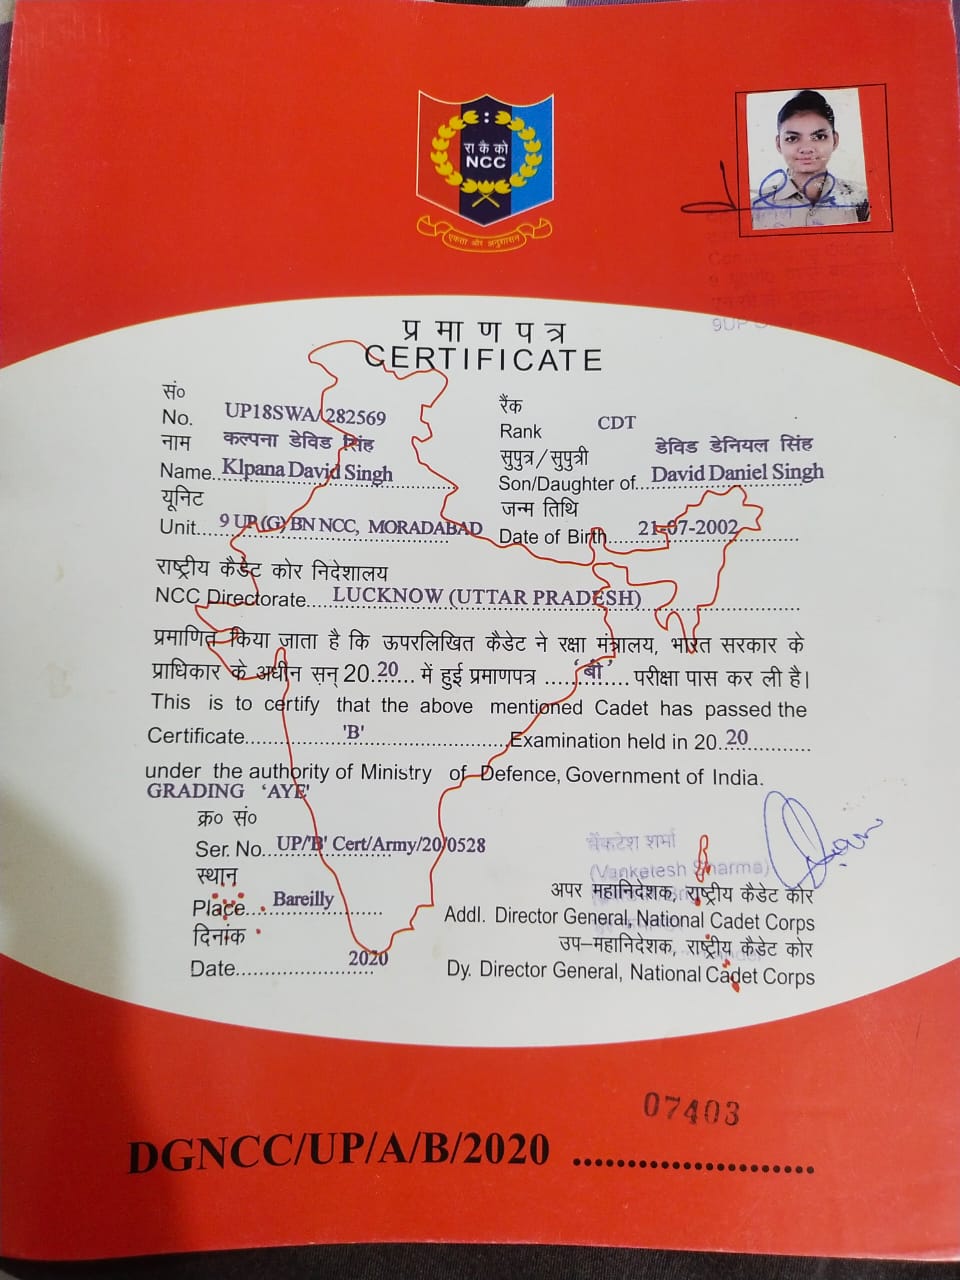 रा कै को
NCC
एकता और अनुशासन
9UP
प्रमाणपत्र
CERTIFICATE
सं०
No. UP18SWA/282569
रैंक
Rank CDT
नाम कल्पना डेविड सिंह
Name..Klpana David Singh
सुपुत्र/सुपुत्री डेविड डेनियल सिंह
Son/Daughter of...David Daniel Singh
यूनिट
Unit....9 UP (G) BN NCC, MORADABAD
जन्म तिथि
Date of Birth......21-07-2002
राष्ट्रीय कैडेट कोर निदेशालय
NCC Directorate....LUCKNOW (UTTAR PRADESH)
प्रमाणित किया जाता है कि ऊपरलिखित कैडेट ने रक्षा मंत्रालय, भारत सरकार के
प्राधिकार के अधीन सन् 20.20... में हुई प्रमाणपत्र ....'बी'.... परीक्षा पास कर ली है।
This is to certify that the above mentioned Cadet has passed the
Certificate..............'B'....................Examination held in 20.20............
under the authority of Ministry of Defence, Government of India.
GRADING 'AYE'
क्र० सं०
Ser. No...UP/'B' Cert/Army/20/0528
स्थान
Place....Bareilly
दिनांक
Date....................2020
वेंकटेश शर्मा
(Vanketesh Sharma)
अपर महानिदेशक, राष्ट्रीय कैडेट कोर
Addl. Director General, National Cadet Corps
उप-महानिदेशक, राष्ट्रीय कैडेट कोर
Dy. Director General, National Cadet Corps
07403
DGNCC/UP/A/B/2020 ........................